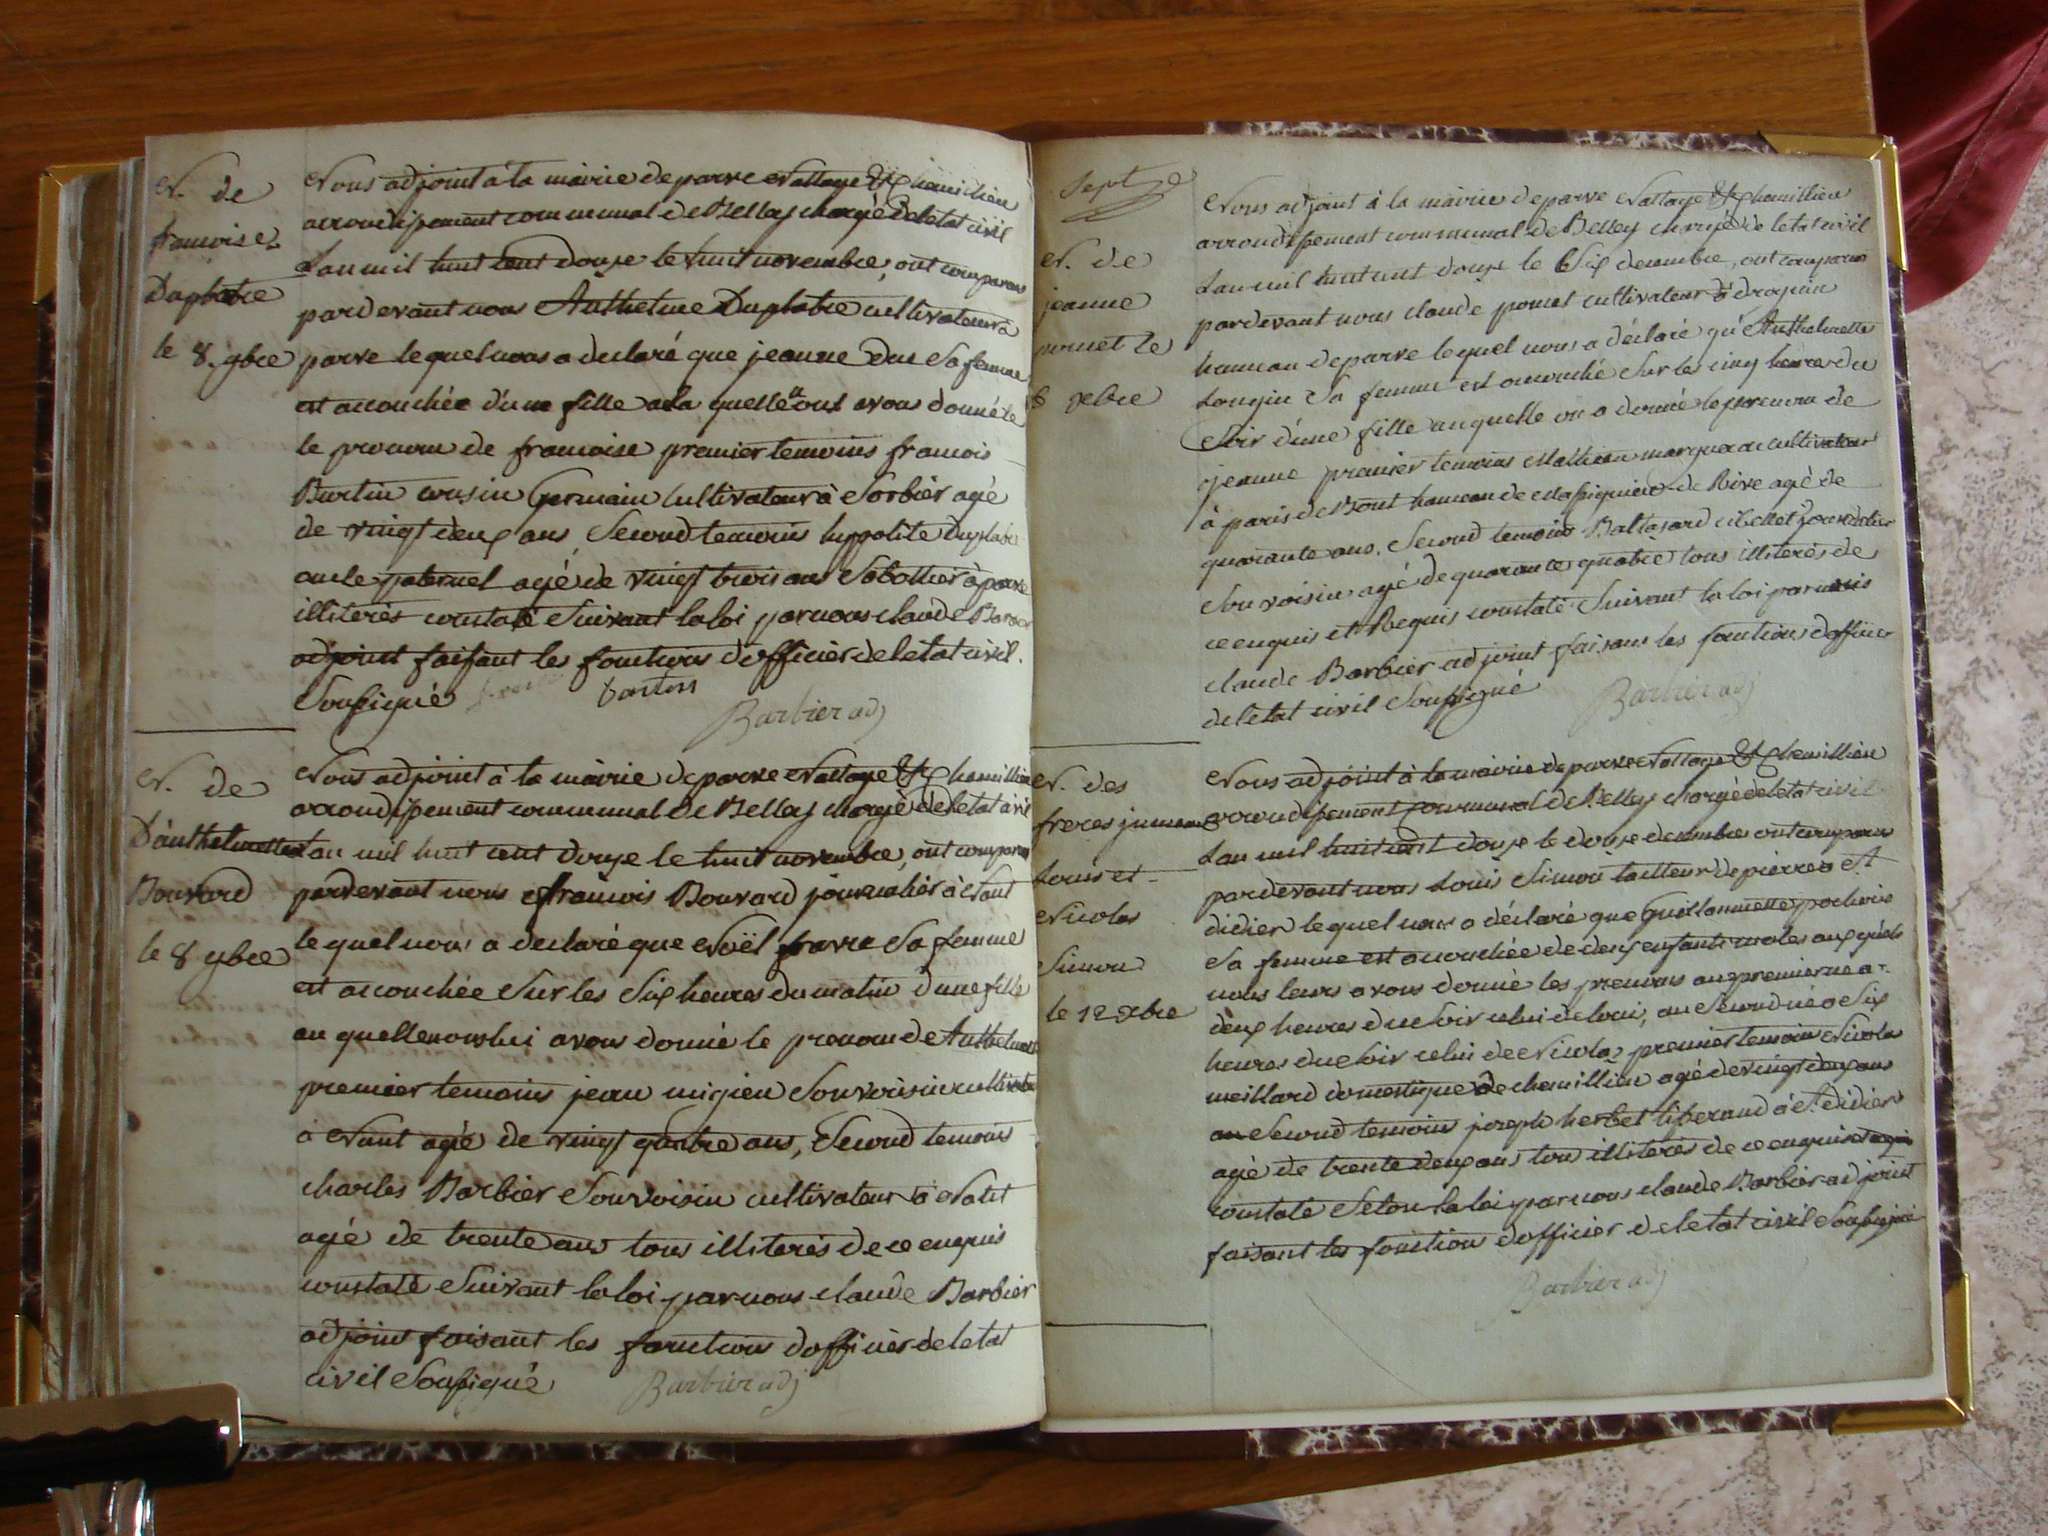 N. de
francoise
Duplatre
le 8. 9bre
Nous adjoint a la mairie de parve Nattage & chemilien
arrondissement communal de Belley chargé de letat civil
Lan mil huit cent douze le huit novembre, ont comparus
pardevant nous Anthelme Duplatre cultivateur à
parve lequel nous a declaré que jeanne Duc Sa femme
est accouchée d'une fille a la quelle nous avons donné le
le prenom de francoise premier temoins francois
Burtin cousin Germain Cultivateur à Sorbier agé
de vingt deux ans Second temoins hyppolite Duplatre
oncle paternel agé de vingt trois ans Sabottier à parve
illiterés constaté Suivant la loi par nous claude Barbier
adjoint faisant les fonctions dofficier de letat civil.
Soussigné
Barbier adj
N. de
D'anthelmette
Bouvard
le 8 9bre
Nous adjoint à la mairie de parve Nattage & chemillien
arrondissement communal de Belley chargé de letat civil
Lan mil huit cent douze le huit novembre, ont comparu
pardevant nous francois Bouvard journalier à Nant
lequel nous a declaré que Noël favre Sa femme
est accouchée Sur les Six heures du matin d'une fille
au quelle nous lui avons donné le prenom de Anthelmette
premier temoins jean migieu Son voisin cultivateur
à Nant agé de vingt quatre ans, Second temoins
charles Barbier Son voisin cultivateur à Nant
agé de trente ans tous illiterés de ce enquis
constaté Suivant la loi par nous claude Barbier
adjoint faisant les fonction dofficier de letat
civil Soussigné
Barbier adj
Sept
N. de
jeanne
pomet le
6 xbre
Nous adjoint à la mairie de parve Nattage & chemillien
arrondissement communal de Belley chargé de letat civil
Lan mil huit cent douze le Six decembre, ont comparu
pardevant nous claude pomet cultivateur à
hameau de parve lequel nous a déclaré qu'Anthelmette
Longin Sa femme est accouché Sur les cinq heures du
Soir d'une fille auquelle on a donné le prenom de
jeanne premier temoins Mathieu cultivateur
à paris de Bout hameau de Massignieu de Rive agé de
quarante ans. Second temoins Baltazard
Son voisin agé de quarante quatre tous illiterés de
ce enquis et Requis constaté Suivant la loi par nous
claude Barbier adjoint faisans les fonctions dofficier
de létat civil Soussigné
Barbier adj
N. des
freres jumeaux
Louis et
Nicolas
Simon
le 12 xbre
Nous adjoint à la mairie de parve Nattage & chemillien
arrondissement communal de Belley chargé de letat civil
Lan mil huit cent douze le douze decembre ont comparus
pardevant nous Louis Simon tailleur de pierres a St
didier lequel nous a déclaré que Guillaumette
Sa femme est accouchée de deux enfants males aux quels
nous leurs avons donné les prenoms au premier né a
deux heures du Soir celui de loui, au Second né a Six
heures du Soir celui de Nicolas premier temoin Nicolas
meillard domestique de chemillien agé de vingt deux ans
au Second temoins joseph herbet tisserand à St didier
agé de trente deux ans tous illiterés de ce enquis et requis
constaté Selon la loi par nous claude Barbier adjoint
faisant les fonctions dofficier de letat civil Soussigné
Barbier adj